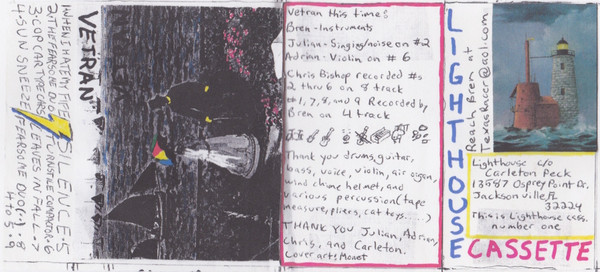 VETRAN
WHEN I HATE MY
2. THE FEARSOME DUO
3. COP CAR TYPE CARS
4. SUN SNEEZE
SILENCE · 5
TURNSTILE COMPACTOR · 6
LEAVES IN FALL · 7
FEARSOME DUO (..) · 8
4 to 5 · 9
Vetran this time:
Bren-Instruments
Julian-Singing/noise on #2
Adrian-Violin on #6
Chris Bishop recorded #s
2 thru 6 on 8 track
#1, 7, 8, and 9 Recorded by
Bren on 4 track
Thank you drums, guitar,
bass, voice, violin, air organ,
wind chime helmet, and
various percussion (tape
measure, pliers, cat toys......)
THANK YOU Julian, Adrian,
Chris, and Carleton.
Cover art: Monet
LIGHTHOUSE
CASSETTE
Reach Bren at
TexasRacer@aol.com
Lighthouse c/o
Carleton Peck
13587 Osprey Point Dr.
Jacksonville, FL
32224
This is Lighthouse cass.
number one